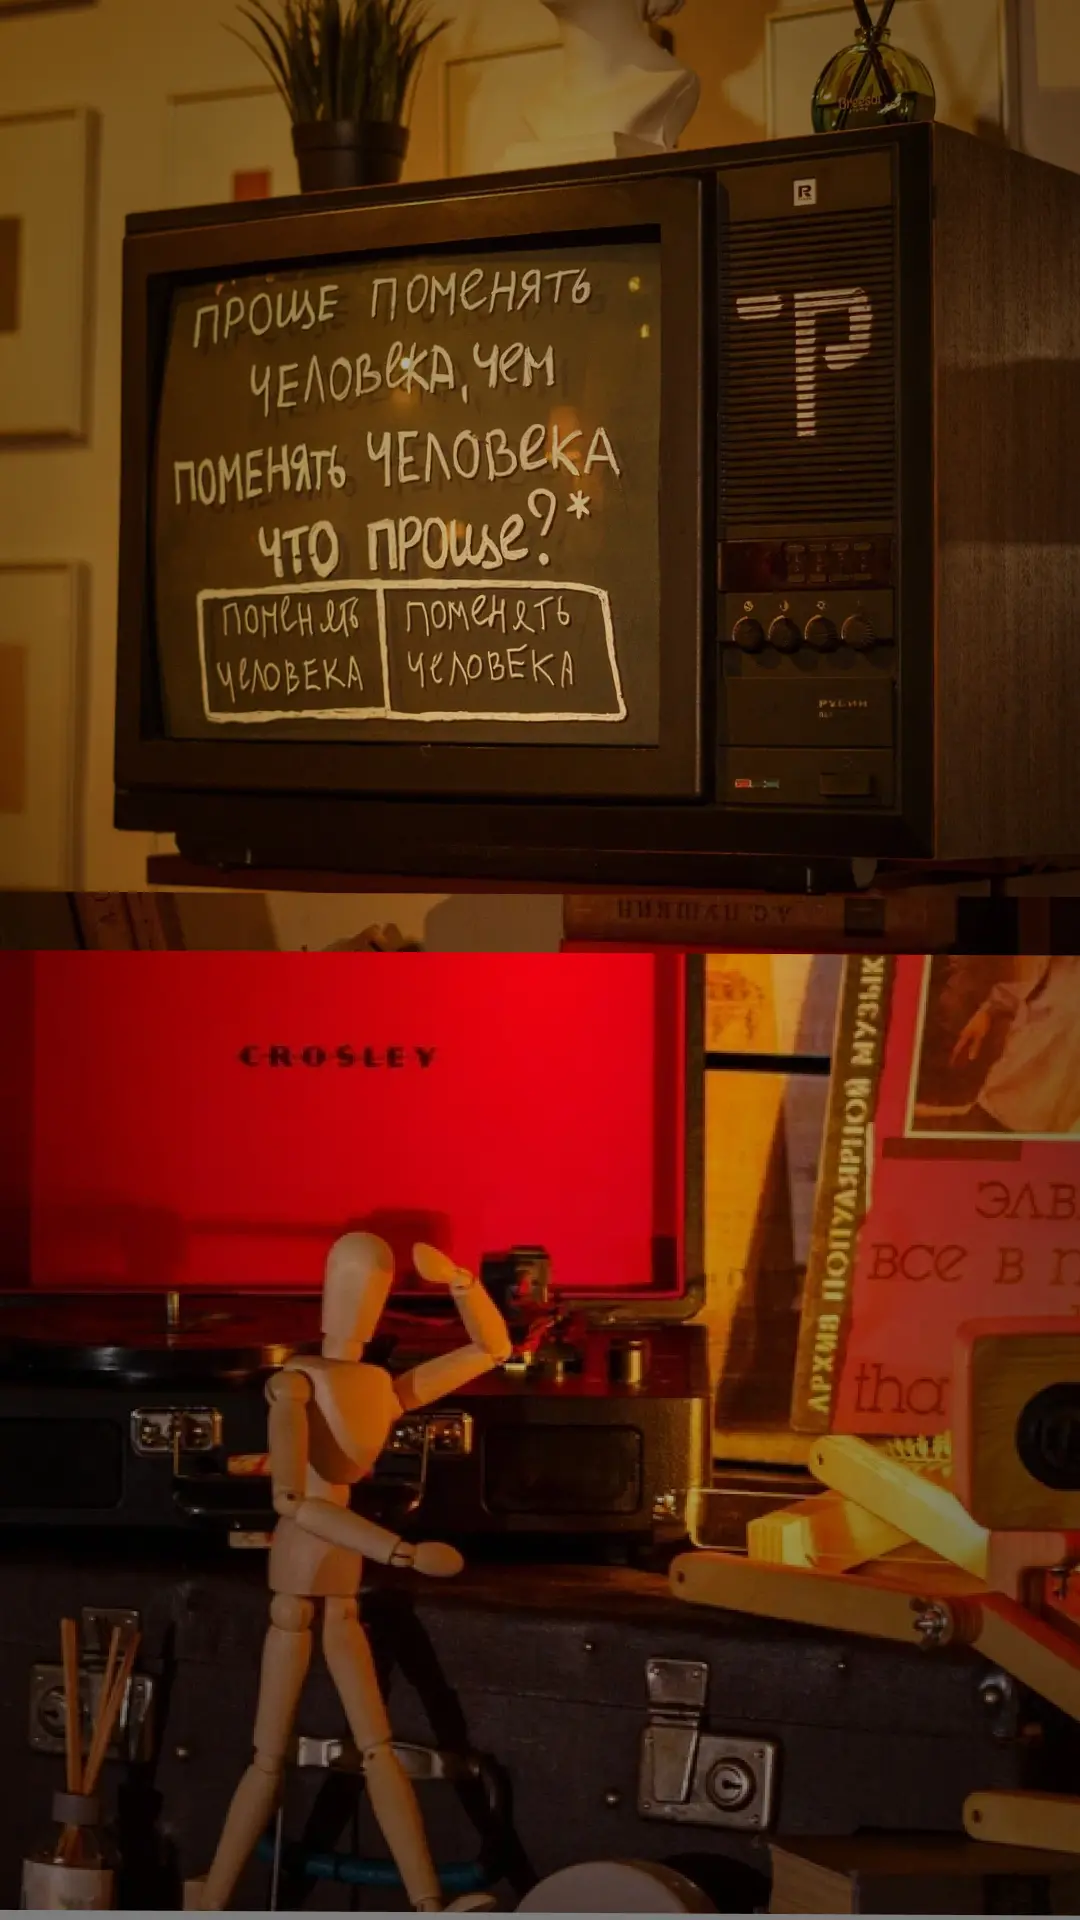 Breesal
R
ПРОЩЕ ПОМЕНЯТЬ
ЧЕЛОВеКА, Чем
ПОМЕНЯТЬ ЧЕЛОВеКА
ЧТО ПРОще?*
ПОМеНЯТЬ
ЧеЛОВЕКА
ПОМеНЯТЬ
ЧеЛОВЕКА
РУБИН
А.С.ПУШКИН
CROSLEY
АРХИВ ПОПУЛЯРНОЙ МУЗЫК
ЭЛВ
все в п
tha